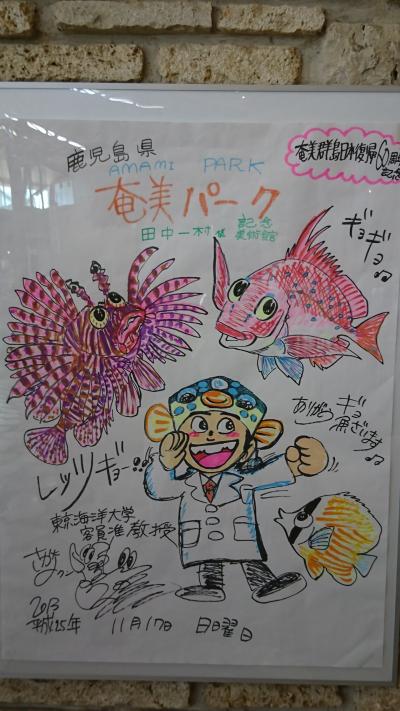 鹿児島県
AMAMI PARK
奄美パーク
田中一村
記念
美術館
奄美群島日本復帰60周年
記念
ギョギョ
レッツギョー!!
ありがとう
ギョ
ざいます
東京海洋大学
客員准教授
さかな
クン
2013
平成25年 11月17日 日曜日